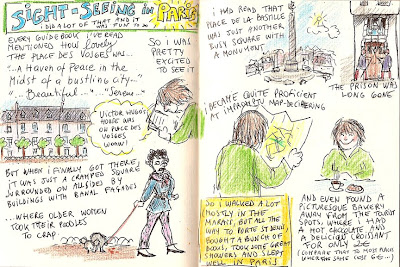 SIGHT-SEEING in PARIS
I DID A LOT OF THAT AND IT
WAS FUN TOO
EVERY GUIDEBOOK I'VE READ
MENTIONED HOW lovely
THE PLACE DES VOSGES WAS...
"...A Haven of Peace in the
Midst of a bustling city..."
"...Beautiful..." "...Serene..."
SO I WAS
PRETTY
EXCITED TO
SEE IT
VICTOR HUGO'S
HOUSE WAS
ON PLACE DES
VOSGES
WOAW!
BUT WHEN I FINALLY GOT THERE,
IT WAS JUST A CRAMPED SQUARE
SURROUNDED ON ALL SIDES BY
BUILDINGS WITH BANAL FAÇADES
...WHERE OLDER WOMEN
TOOK THEIR POODLES
TO CRAP.
I HAD READ THAT
PLACE DE LA BASTILLE
WAS JUST ANOTHER
BUSY SQUARE WITH
A MONUMENT
THE PRISON WAS
LONG GONE
I BECAME QUITE PROFICIENT
AT IMPROMPTU MAP-DECIPHERING
SO I WALKED A LOT
MOSTLY IN THE
MARAIS, BUT ALL THE
WAY TO PORTE ST DENIS,
BOUGHT A BUNCH OF
BOOKS, TOOK SOME GREAT
SHOWERS AND SLEPT
WELL IN PARIS
AND EVEN FOUND A
PICTURESQUE BAKERY
AWAY FROM THE TOURIST
SPOTS, WHERE I HAD
A HOT CHOCOLATE AND
A DELICIOUS CROISSANT
FOR ONLY 2€
(COMPARE THAT TO MOST PLACES
WHERE THE SAME COST 6€...)